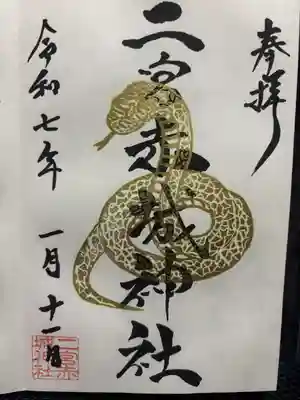 奉拝
二宮赤城神社
令和七年
一月十一日
二宮赤
城神社